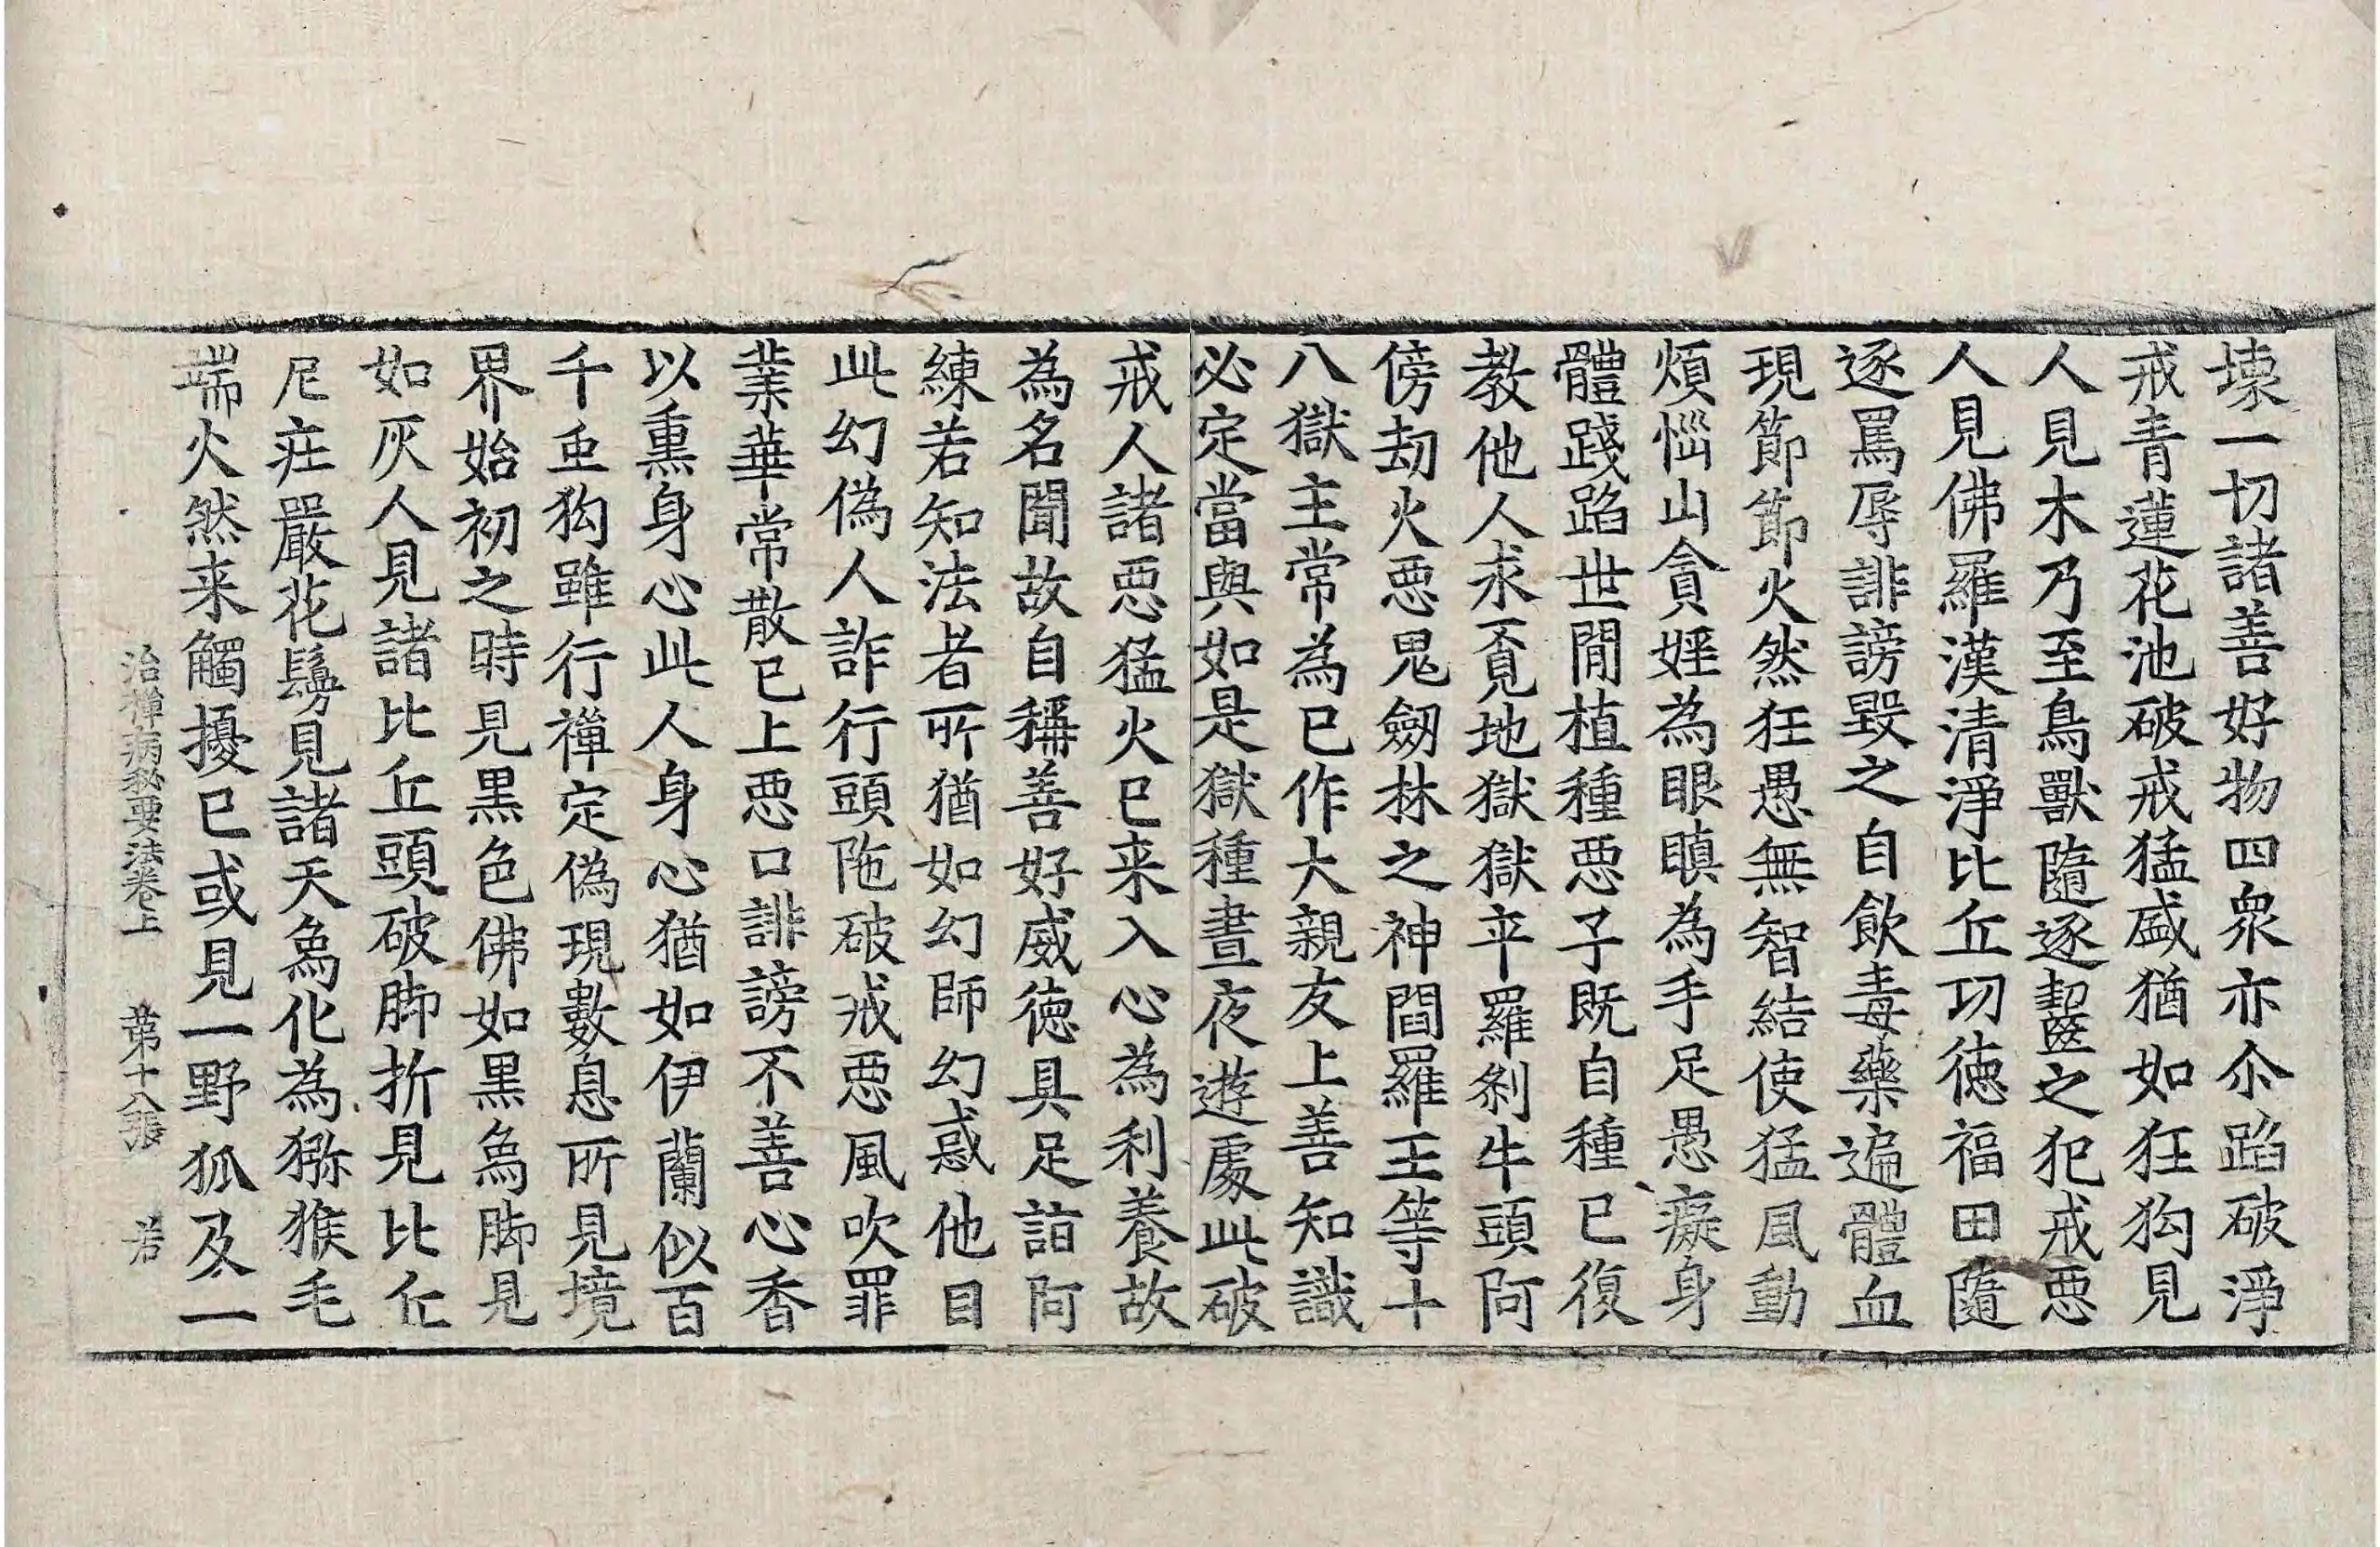 壊一切諸善好物四衆亦尒蹈破淨
戒青蓮花池破戒猛盛猶如狂狗見
人見木乃至鳥獸隨逐齧之犯戒惡
人見佛羅漢清淨比丘功德福田隨
逐罵辱誹謗毀之自飮毒藥遍體血
現節節火然狂愚無智結使猛風動
煩惱山貪婬爲眼瞋爲手足愚癡身
體踐蹈世閒植種惡子既自種已復
教他人求覓地獄獄卒羅剎牛頭阿
傍劫火惡鬼劒林之神閻羅王等十
八獄主常爲已作大親友上善知識
必定當與如是獄種晝夜遊處此破
戒人諸惡猛火已来入心爲利養故
爲名聞故自稱善好威德具足詣阿
練若知法者所猶如幻師幻惑他目
此幻僞人詐行頭陁破戒惡風吹罪
業華常散已上惡口誹謗不善心香
以熏身心此人身心猶如伊蘭似百
千重狗雖行禪定僞現數息所見境
界始初之時見黑色佛如黑象脚見
如灰人見諸比丘頭破脚折見比丘
尼莊嚴花鬘見諸天象化爲獼猴毛
端火然来觸擾已或見一野狐及一
治禪病秘要法卷上　第十八張　若